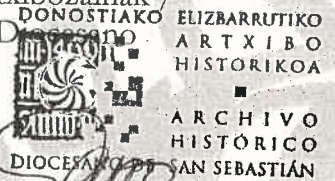 DONOSTIAKO ELIZBARRUTIKO
ARTXIBO
HISTORIKOA
ARCHIVO
HISTÓRICO
DIOCESANO DE SAN SEBASTIÁN